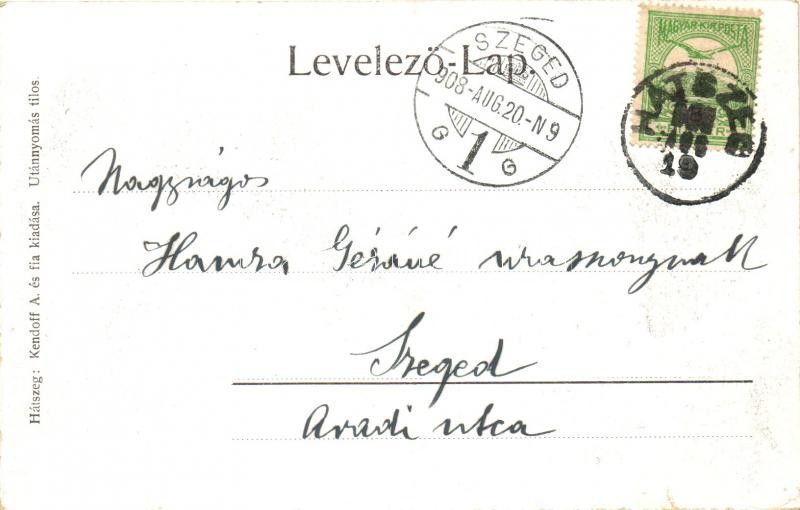 Levelező-Lap.
MAGYAR KIR. POSTA
SZEGED
908-AUG.20.-N9
1
G G
HÁTSZEG
19
Nagyságos
Hamza Gézáné urasszonynak
Szeged
Aradi utca
Hátszeg: Kendoff A. és fia kiadása. Utánnyomás tilos.